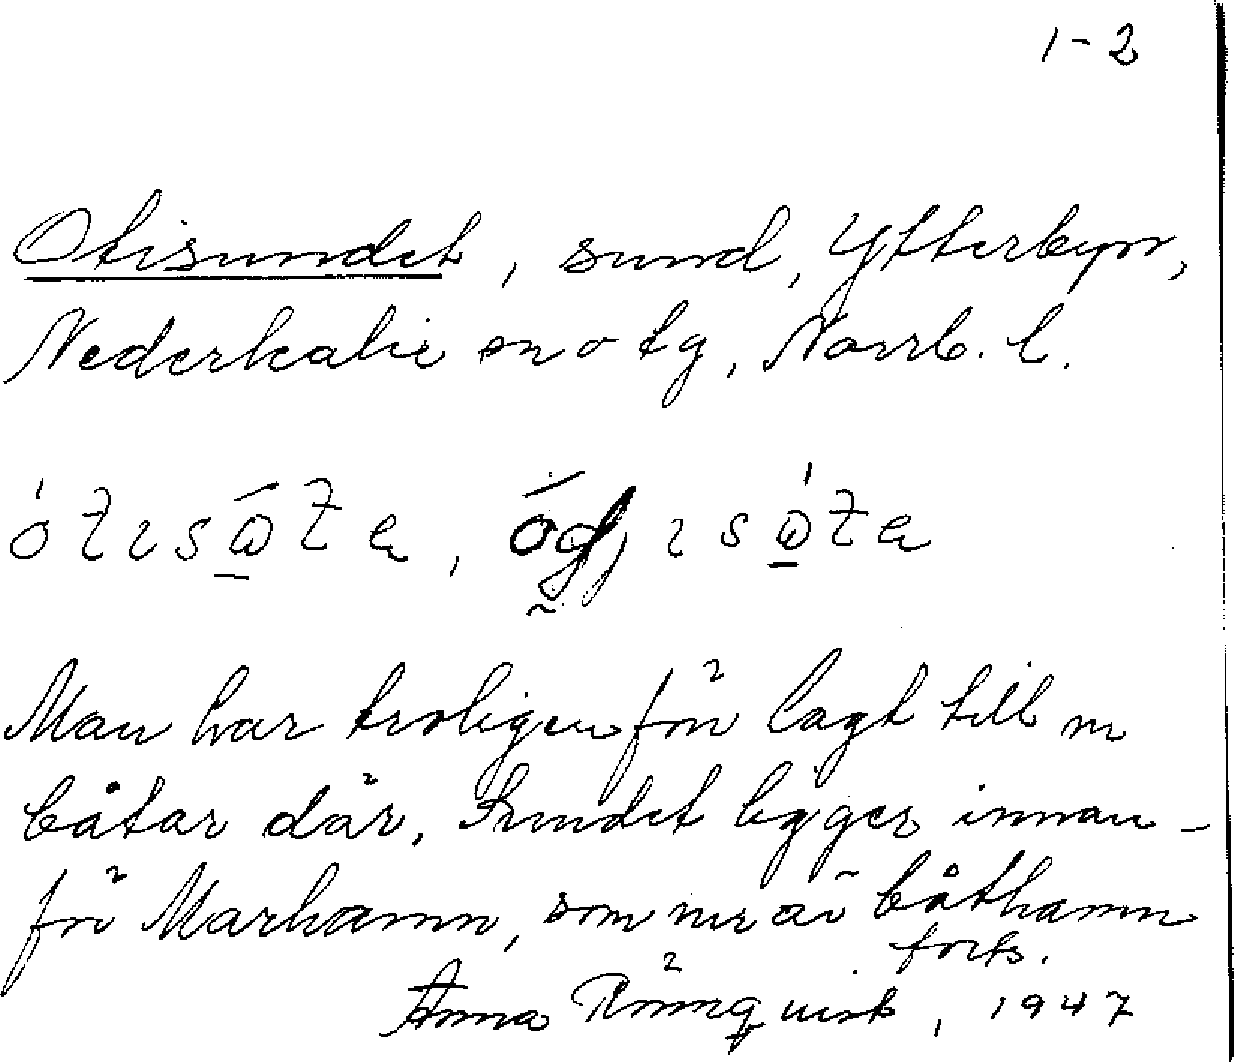 1-2
Otisundet, sund, Ytterbyn,
Nederkalix sn o tg, Norrb. l.
Man har troligen för lagt till m
båtar där. Sundet ligger innan-
för Marhamn, som nu är båthamn
forts.
Anna Rönnquist, 1947